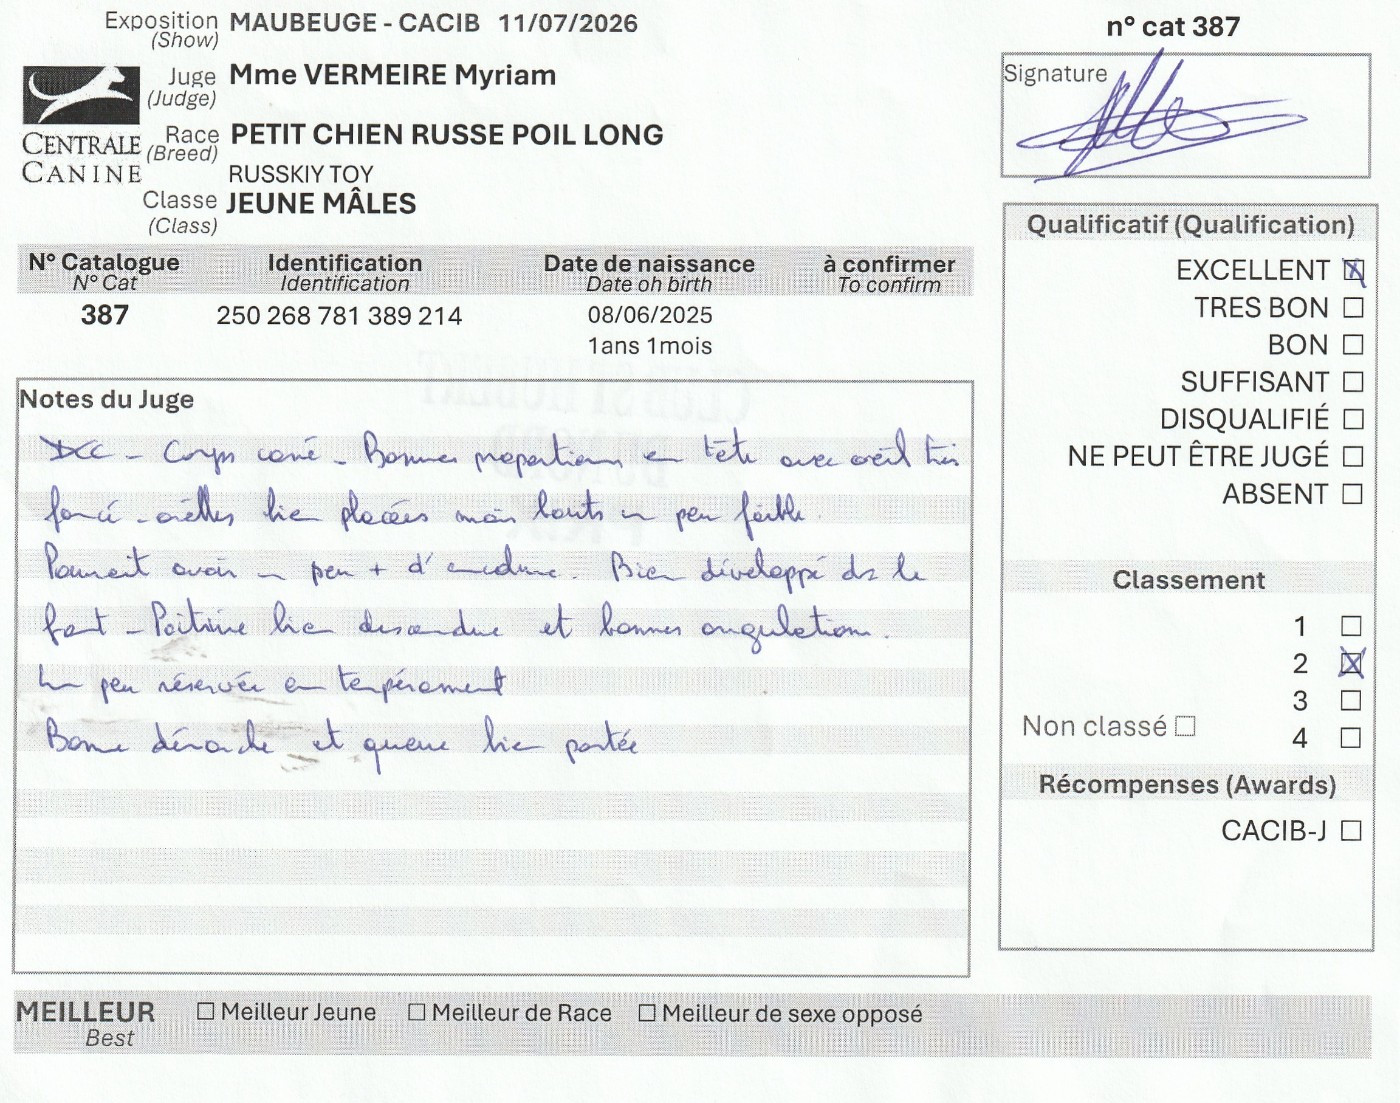 Exposition MAUBEUGE - CACIB 11/07/2026
(Show)
n° cat 387
Juge Mme VERMEIRE Myriam
(Judge)
Signature
CENTRALE
CANINE
Race PETIT CHIEN RUSSE POIL LONG
(Breed)
RUSSKIY TOY
Classe JEUNE MÂLES
(Class)
N° Catalogue Identification Date de naissance à confirmer
N° Cat Identification Date oh birth To confirm
387 250 268 781 389 214 08/06/2025
1ans 1mois
Notes du Juge
Corps carré - Bonnes proportions en tête avec oeil très
foncé - oreilles bien placées mais bouts un peu faible.
Pourrait avoir un peu + d'. Bien développé ds le
- Poitrine bien descendue et bonnes angulations.
Un peu réservée en tempérament
Bonne démarche et queue bien portée
Qualificatif (Qualification)
EXCELLENT
TRES BON
BON
SUFFISANT
DISQUALIFIÉ
NE PEUT ÊTRE JUGÉ
ABSENT
Classement
1
2
3
Non classé
4
Récompenses (Awards)
CACIB-J
MEILLEUR Meilleur Jeune Meilleur de Race Meilleur de sexe opposé
Best